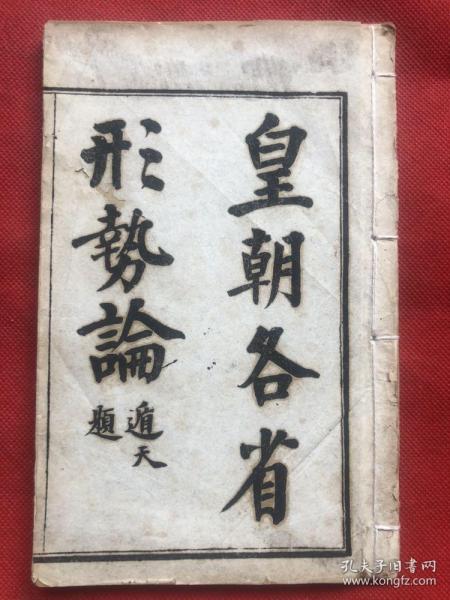 皇朝各省
形勢論
遁天
題
孔夫子旧书网
www.kongfz.com